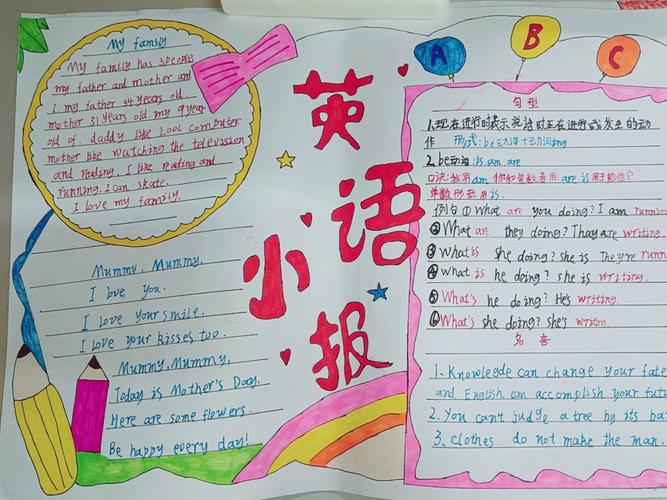 My family
My family has 3people
my father and mother and
I. my father 34 years old.
mother 31 years old. my 9 year
old of. daddy like Look computer
mother like watching the television
and reading. I like reading and
running. I can skate.
I love my family.
Mummy, Mummy,
I love you.
I love your smile.
I love your kisses too.
Mummy, Mummy,
Today is Mother's Day.
Here are some flowers.
Be happy every day!
英语
小报
A B C
句型
1.现在进行时表示说话时正在进行或发生的动
作 形式:be动词+动词ing
2.be动词:is am are
口决:我用am 你和复数要用are is用于他你它
单数形式用is.
例句①What are you doing? I am running
②What are they doing? Thay are writing.
③What is she doing? she is They're runn
④What is he doing? she is writing.
⑤What's he doing? He's writing.
⑥What's she doing? she's writing.
名言
1. Knowlegde can change your fate
and English can accomplish your futu
2. You can't judge a tree by its ba
3. clothes do not make the man.